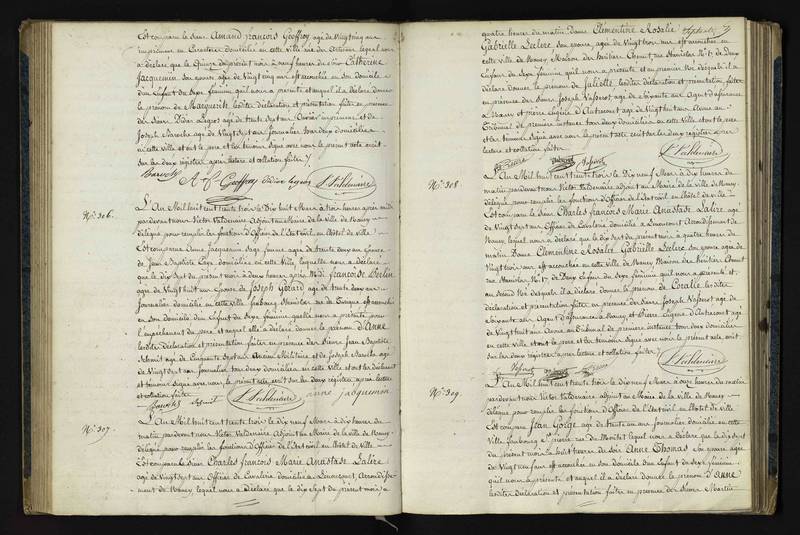 Est comparu le Sieur Amand François Geoffroy agé de Vingt cinq ans
imprimeur en Caractère domicilié en cette ville rue des Artisans lequel nous
a déclaré que le Quinze du présent mois à neuf heures du soir Catherine
Jacquemin son épouse agée de Vingt cinq ans est accouchée en son domicile
d'un Enfant du Sexe féminin qu'il nous a présenté et auquel il a déclaré donner
le prénom de Marguerite lesdites déclaration et présentation faites en présence
des Sieurs Didier agé de trente sept ans Ouvrier imprimeur et de
Joseph agé de Vingt sept ans Journalier tous deux domiciliés
en cette ville et ont le père et les témoins signé avec nous le présent acte écrit
sur les deux registres après lecture et collation faites
A. f. Geoffroy
N.o 306.
L'An Mil huit cent trente trois le Dix huit Mars à trois heures après midi
pardevant nous Victor Valdenaire Adjoint au Maire de la Ville de Nancy
délégué pour remplir les fonctions d'Officier de l'Etat civil en l'hôtel de Ville
Est comparue Anne Jacquemin Sage femme agée de trente deux ans Epouse
de Jean Baptiste domiciliée en cette Ville laquelle nous a déclaré
que le dix Sept du présent mois à deux heures après Midi françoise
agée de Vingt huit ans Epouse de Joseph Gérard agé de trente deux ans
Journalier domicilié en cette ville faubourg Stanislas est accouchée
en son domicile d'un Enfant du Sexe féminin qu'elle nous a présenté pour
l'empêchement du père et auquel elle a déclaré donner le prénom d'Anne
lesdites déclaration et présentation faites en présence des Sieurs Jean Baptiste
agé de Cinquante Sept ans Ancien Militaire et de Joseph agé
de Vingt sept ans Journalier tous deux domiciliés en cette Ville et ont les déclarant
et témoins signé avec nous le présent acte écrit sur les deux registres après lecture
et collation faites
anne jacquemin
N.o 307.
L'An Mil huit cent trente trois le dix neuf Mars à dix heures du
matin pardevant nous Victor Valdenaire Adjoint au Maire de la ville de Nancy
délégué pour remplir les fonctions d'Officier de l'Etat civil en l'hôtel de Ville
Est comparu le Sieur Charles François Marie Anastase Lalire
agé de Vingt sept ans Officier de Cavalerie domicilié à Arrondisse-
ment de Nancy lequel nous a déclaré que le dix Sept du présent mois à
quatre heures du matin Dame Clémentine Rosalie
Gabrielle Leclerc, son épouse, agée de Vingt trois ans est accouchée en
cette ville de Nancy Maison des héritiers rue Stanislas de Deux
Enfans du Sexe féminin qu'il nous a présenté et au premier Né duquel il a
déclaré donner le prénom de Juliette lesdites déclaration et présentation faites
en présence des Sieurs Joseph agé de Soixante ans Agent d'assurance
à Nancy et pierre Eugène d'Autrecourt agé de Vingt huit ans Avoué au
Tribunal de première instance tous deux domiciliés en cette Ville et ont le père
et les témoins signé avec nous le présent acte écrit sur les deux registres après
lecture et collation faites
N.o 308.
L'An Mil huit cent trente trois le Dix neuf Mars à dix heures du
matin pardevant nous Victor Valdenaire adjoint au Maire de la Ville de Nancy
délégué pour remplir les fonctions d'Officier de l'Etat civil en l'hôtel de ville
Est comparu le Sieur Charles François Marie Anastase Lalire agé
de Vingt sept ans Officier de Cavalerie domicilié à Arrondissement de
Nancy lequel nous a déclaré que le dix Sept du présent mois à quatre heures du
matin Dame Clémentine Rosalie Gabrielle Leclerc son épouse agée de
Vingt trois ans est accouchée en cette ville de Nancy Maison des héritiers
rue Stanislas de Deux Enfans du Sexe féminin qu'il nous a présenté et
au Second Né desquels il a déclaré donner le prénom de Coralie lesdites
déclaration et présentation faites en présence des Sieurs Joseph agé de
Soixante ans Agent d'assurance à Nancy et Pierre Eugène d'Autrecourt agé
de Vingt huit ans Avoué au Tribunal de première instance tous deux domiciliés
en cette Ville et ont le père et les témoins signé avec nous le présent acte écrit
sur les deux registres après lecture et collation faites
N.o 309.
L'An Mil huit cent trente trois le dix neuf Mars à onze heures du matin
pardevant nous Victor Valdenaire adjoint au Maire de la Ville de Nancy
délégué pour remplir les fonctions d'Officier de l'Etat civil en l'hôtel de Ville
Est comparu Jean agé de trente un ans Journalier domicilié en cette
Ville faubourg St pierre rue du Montet lequel nous a déclaré que le dix sept
du présent mois à huit heures du soir Anne Thomas son épouse agée
de Vingt neuf ans est accouchée en son domicile d'un Enfant du Sexe féminin
qu'il nous a présenté et auquel il a déclaré donner le prénom d'Anne
lesdites déclaration et présentation faites en présence des Sieurs